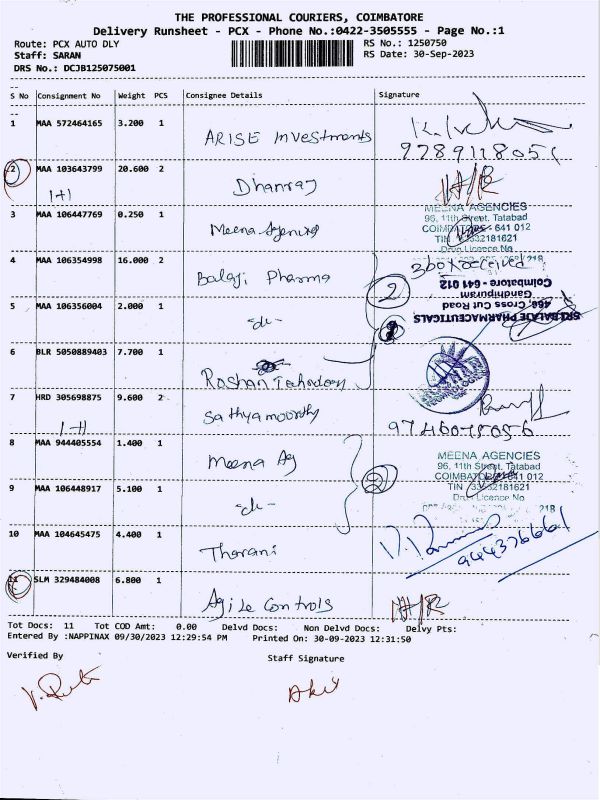 THE PROFESSIONAL COURIERS, COIMBATORE
Delivery Runsheet - PCX - Phone No.:0422-3505555 - Page No.:1
Route: PCX AUTO DLY RS No.: 1250750
Staff: SARAN RS Date: 30-Sep-2023
DRS No.: DCJB125075001
S No Consignment No Weight PCS Consignee Details Signature
1 MAA 572464165 3.200 1 ARISE Investments
2 MAA 103643799 20.600 2 Dhanraj
1+1
MEENA AGENCIES
3 MAA 106447769 0.250 1 Meena Agencies
96, 11th Street, Tatabad
COIMBATORE - 641 012
4 MAA 106354998 16.000 2 Balaji Pharma
3 box received
2
SRI BALAJE PHARMACEUTICALS
466, Cross Cut Road
Gandhipuram
Coimbatore - 641 012
5 MAA 106356004 2.000 1 -do-
6 BLR 5050889403 7.700 1 Roshan
7 HRD 305698875 9.600 2 Sathyamoorthy
1+1
8 MAA 944405554 1.400 1 Meena Ag
MEENA AGENCIES
96, 11th Street, Tatabad
COIMBATORE 641 012
TIN 33332181621
Drug Licence No
9 MAA 106448917 5.100 1 -do-
2
10 MAA 104645475 4.400 1 Tharani
11 SLM 329484008 6.800 1 Agile Controls
Tot Docs: 11 Tot COD Amt: 0.00 Delvd Docs: Non Delvd Docs: Delvy Pts:
Entered By :NAPPINAX 09/30/2023 12:29:54 PM Printed On: 30-09-2023 12:31:50
Verified By Staff Signature